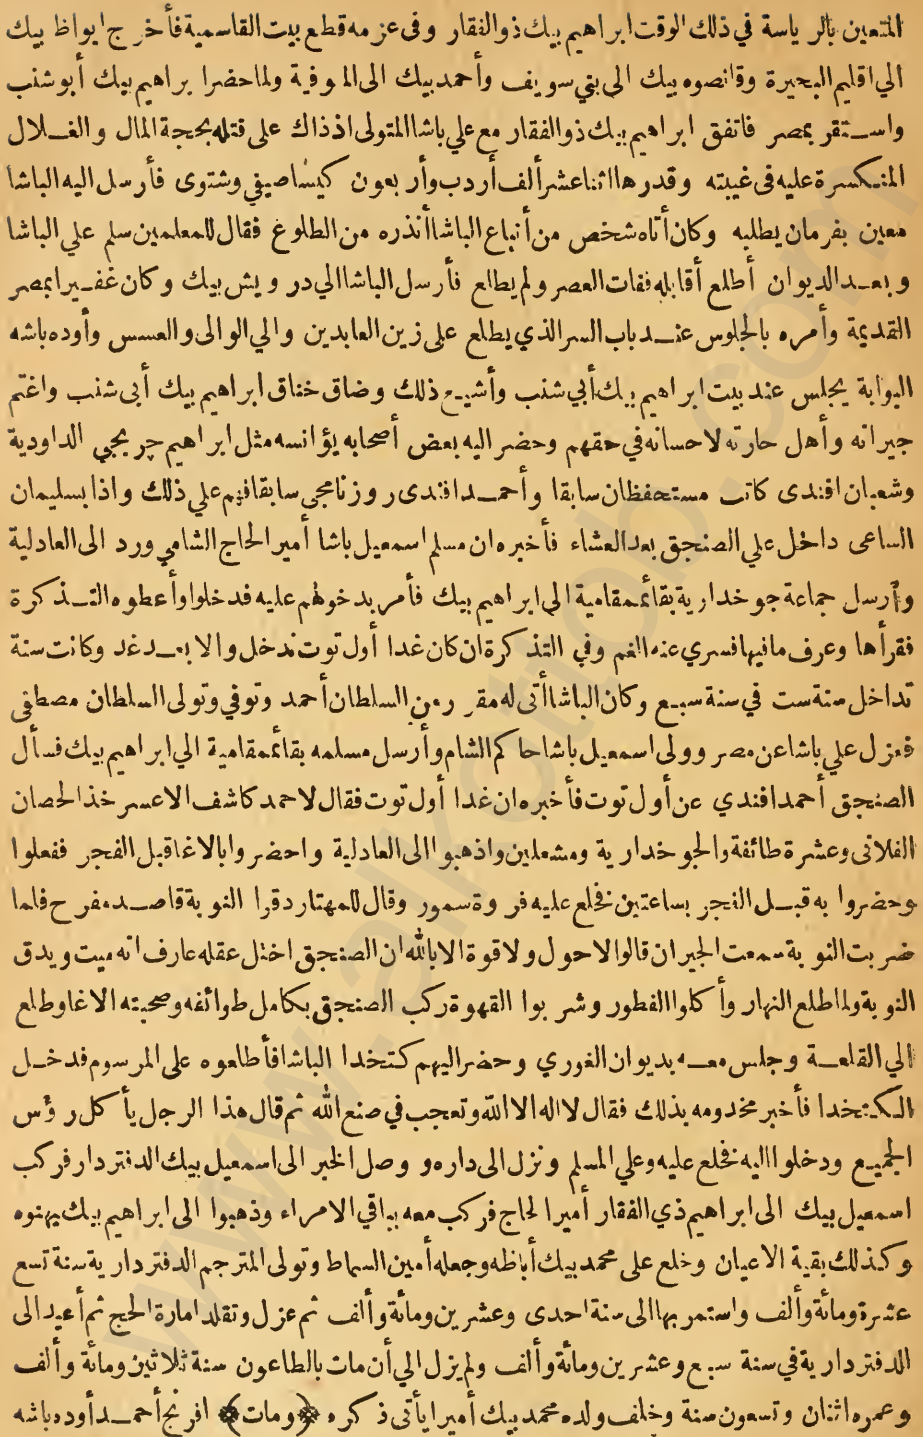 المتعين بالرياسة في ذلك الوقت ابراهيم بيك ذوالفقار وفى عزمه قطع بيت القاسمية فأخرج ايواظ بيك
الي اقليم البحيرة وقانصوه بيك الى بنى سويف وأحمد بيك الى المنوفية ولما حضر ابراهيم بيك أبو شنب
واستقر بمصر فاتفق ابراهيم بيك ذوالفقار مع علي باشا المتولى اذ ذاك على قتله بحجة المال والغلال
المنكسرة عليه فى غيبته وقدرها اثنا عشر ألف أردب وأربعون كيسا صيفي وشتوى فأرسل اليه الباشا
معين بفرمان يطلبه وكان أتاه شخص من أتباع الباشا أنذره من الطلوع فقال للمعلمين سلم علي الباشا
وبعد الديوان أطلع أقابله ففات العصر ولم يطالع فأرسل الباشا الي درويش بيك وكان غفيرا بمصر
القديمة وأمره بالجلوس عند باب السر الذي يطلع على زين العابدين والي الوالى والعسس وأوده باشه
البوابة يجلس عند بيت ابراهيم بيك أبي شنب وأشيع ذلك وضاق خناق ابراهيم بيك أبى شنب واغتم
جيرانه وأهل حارته لاحسانه في حقهم وحضر اليه بعض أصحابه يؤانسه مثل ابراهيم جربجي الداودية
وشعبان افندى كاتب مستحفظان سابقا وأحمد افندى روزنامجى سابقا فهم علي ذلك واذا بسليمان
الساعى داخل علي الصنجق بعد العشاء فأخبره ان مسلم اسمعيل باشا أمير الحاج الشامي ورد الى العادلية
وأرسل جماعة جوخدارية بقائمقامية الى ابراهيم بيك فأمر بدخولهم عليه فدخلوا وأعطوه التذكرة
فقرأها وعرف ما فيها فسري عنه الغم وفي التذكرة ان كان غدا أول توت ندخل والا بعد غد وكانت سنة
تداخل سنة ست في سنة سبع وكان الباشا أتى له مقرر من السلطان أحمد وتوفي وتولى السلطان مصطفى
فعزل علي باشا عن مصر وولى اسمعيل باشا حاكم الشام وأرسل مسلمه بقائمقامية الي ابراهيم بيك فسأل
الصنجق أحمد افندي عن أول توت فأخبره ان غدا أول توت فقال لاحمد كاشف الاعسر خذ الحصان
الفلانى وعشرة طائفة والجوخدارية ومشعلين واذهبوا الى العادلية واحضروا بالاغا قبل الفجر ففعلوا
وحضروا به قبل الفجر بساعتين فخلع عليه فروة سمور وقال للمهتار دقوا النوبة قاصد مفرح فلما
ضربت النوبة سمعت الجيران قالوا لاحول ولا قوة الا بالله ان الصنجق اختل عقله عارف انه ميت ويدق
النوبة ولما طلع النهار وأكلوا الفطور وشربوا القهوة ركب الصنجق بكامل طوائفه وصحبته الاغا وطلع
الي القلعة وجلس معه بديوان الغوري وحضر اليهم كتخدا الباشا فأطلعوه على المرسوم فدخل
الكتخدا فأخبر مخدومه بذلك فقال لا اله الا الله وتعجب في صنع الله ثم قال هذا الرجل يأكل رؤس
الجميع ودخلوا اليه فخلع عليه وعلي المسلم ونزل الى داره ووصل الخبر الى اسمعيل بيك الدفتردار فركب
اسمعيل بيك الى ابراهيم ذي الفقار أمير الحاج فركب معه بباقي الامراء وذهبوا الى ابراهيم بيك يهنوه
وكذلك بقية الاعيان وخلع على محمد بيك أباظه وجعله أمين السماط وتولى المترجم الدفتردارية سنة تسع
عشرة ومائة وألف واستمر بها الى سنة احدى وعشرين ومائة وألف ثم عزل وتقلد امارة الحج ثم أعيد الى
الدفتردارية في سنة سبع وعشرين ومائة وألف ولم يزل الي أن مات بالطاعون سنة ثلاثين ومائة وألف
وعمره اثنان وتسعون سنة وخلف ولده محمد بيك أميرا يأتى ذكره ﴿ومات﴾ افرنج أحمد أوده باشه
www.alkottob.com